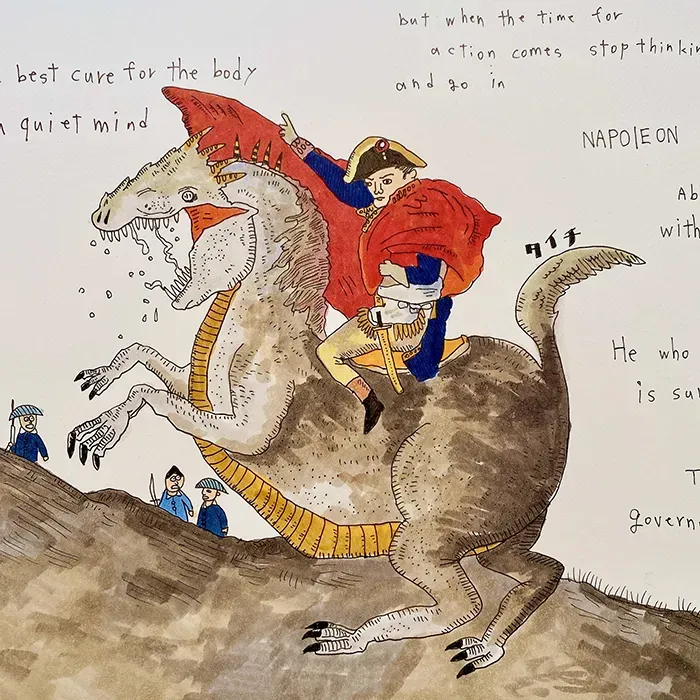 best cure for the body
quiet mind
but when the time for
action comes stop thinkin
and go in
NAPOLEON
Ab
with
タイチ
He who
is su
T
govern